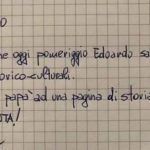 o
ne oggi pomeriggio Edoardo sa
orico-culturali.
papà ad una pagina di storia
TA!